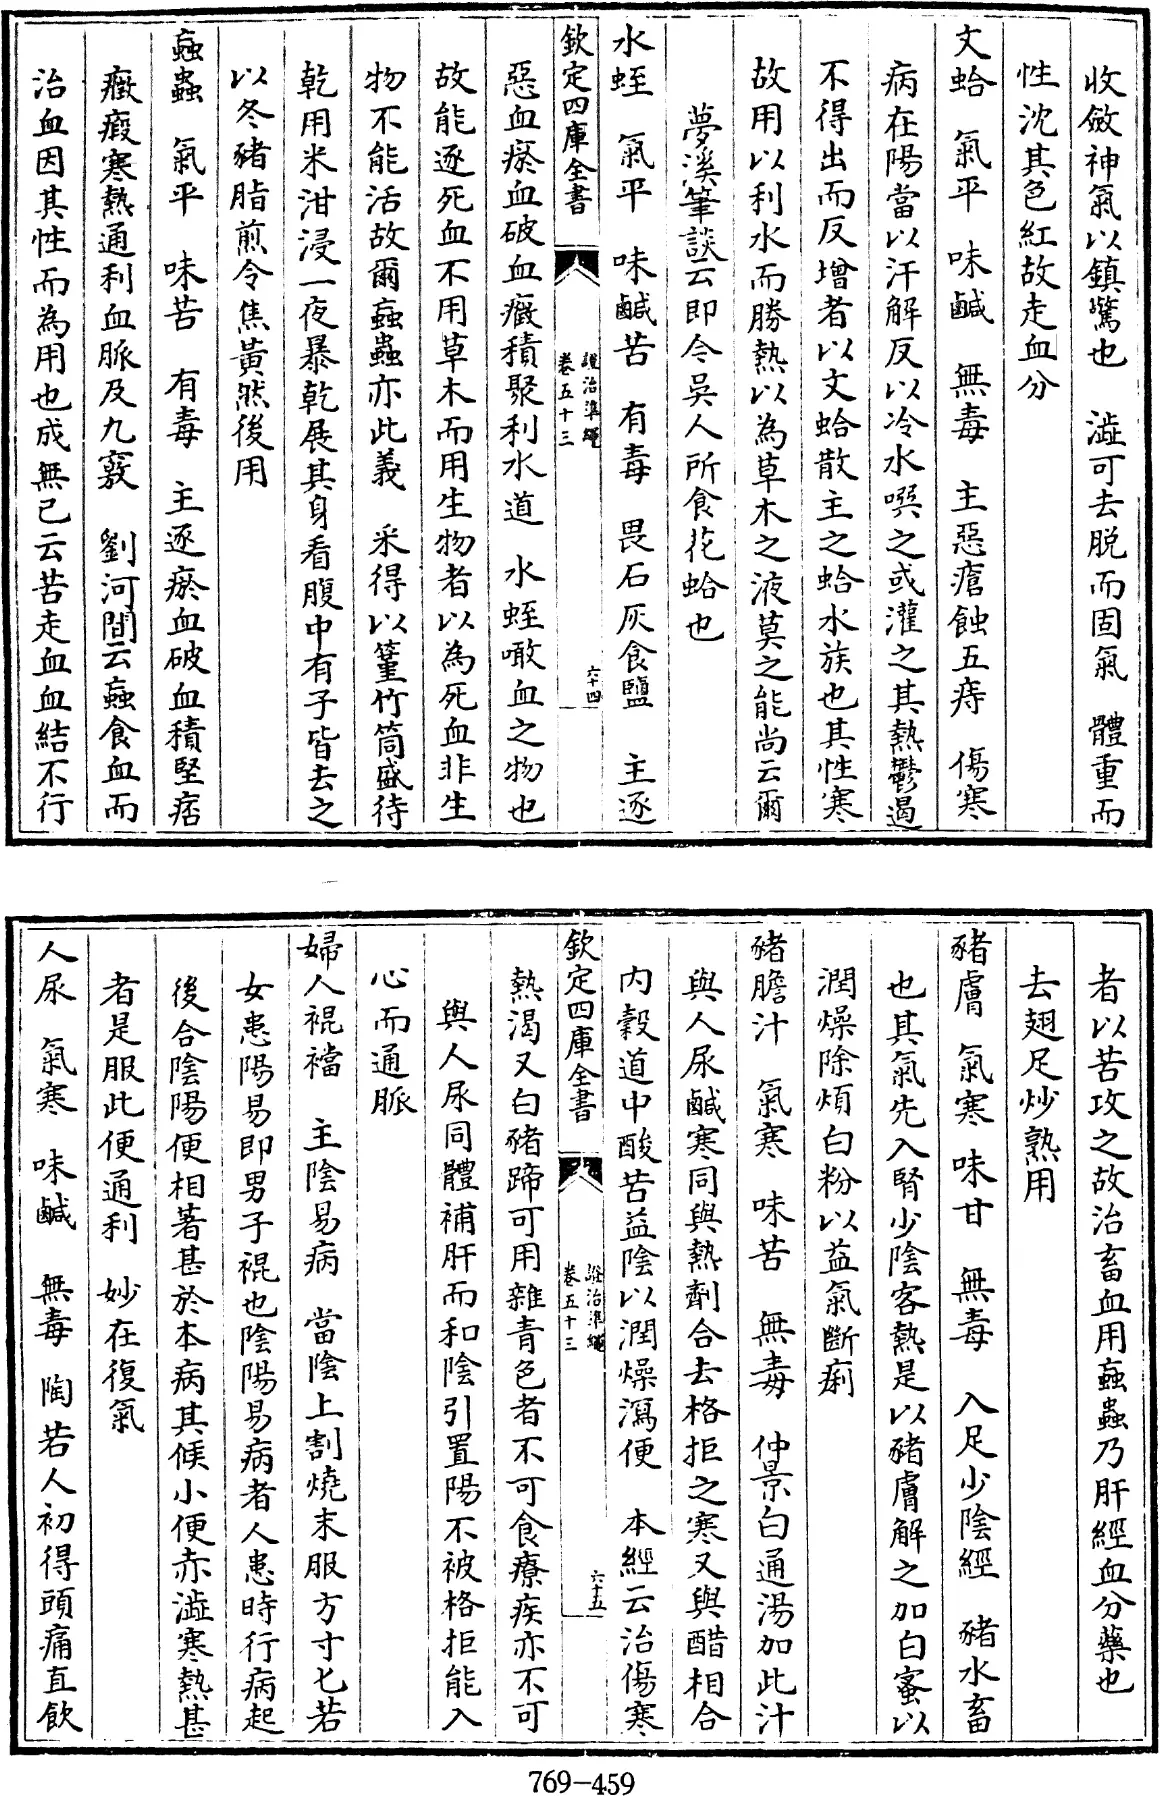 收斂神氣以鎮驚也　澁可去脱而固氣　體重而
性沈其色紅故走血分
文蛤　氣平　味鹹　無毒　主惡瘡蝕五痔　傷寒
病在陽當以汗解反以冷水噀之或灌之其熱鬱遏
不得出而反增者以文蛤散主之蛤水族也其性寒
故用以利水而勝熱以為草木之液莫之能尚云爾
夢溪筆談云即今吳人所食花蛤也
水蛭　氣平　味鹹苦　有毒　畏石灰食鹽　主逐
欽定四庫全書
證治準繩
卷五十三
六十四
惡血瘀血破血癥積聚利水道　水蛭噉血之物也
故能逐死血不用草木而用生物者以為死血非生
物不能活故爾蝱蟲亦此義　采得以䈽竹筒盛待
乾用米泔浸一夜暴乾展其身看腹中有子皆去之
以冬豬脂煎令焦黄然後用
蝱蟲　氣平　味苦　有毒　主逐瘀血破血積堅痞
癥瘕寒熱通利血脈及九竅　劉河間云蝱食血而
治血因其性而為用也成無已云苦走血血結不行
者以苦攻之故治畜血用蝱蟲乃肝經血分藥也
去翅足炒熟用
豬膚　氣寒　味甘　無毒　入足少陰經　豬水畜
也其氣先入腎少陰客熱是以豬膚解之加白蜜以
潤燥除煩白粉以益氣斷痢
豬膽汁　氣寒　味苦　無毒　仲景白通湯加此汁
與人尿鹹寒同與熱劑合去格拒之寒又與醋相合
内穀道中酸苦益陰以潤燥瀉便　本經云治傷寒
欽定四庫全書
證治準繩
卷五十三
六十五
熱渴又白豬蹄可用雜青色者不可食療疾亦不可
與人尿同體補肝而和陰引置陽不被格拒能入
心而通脈
婦人裩襠　主陰易病　當陰上割燒末服方寸匕若
女患陽易即男子裩也陰陽易病者人患時行病起
後合陰陽便相著甚於本病其候小便赤澁寒熱甚
者是服此便通利　妙在復氣
人尿　氣寒　味鹹　無毒　陶若人初得頭痛直飲
769-459